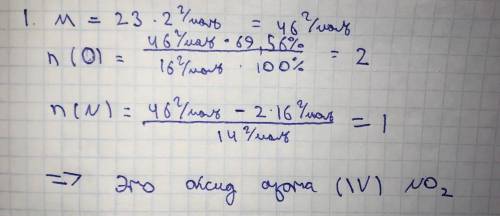 1. М = 23 · 2 г/моль = 46 г/моль
n(O) = 46 г/моль · 69,56% / 16 г/моль · 100% = 2
n(N) = 46 г/моль – 2·16 г/моль / 14 г/моль = 1
=> Это оксид азота (IV) NO₂